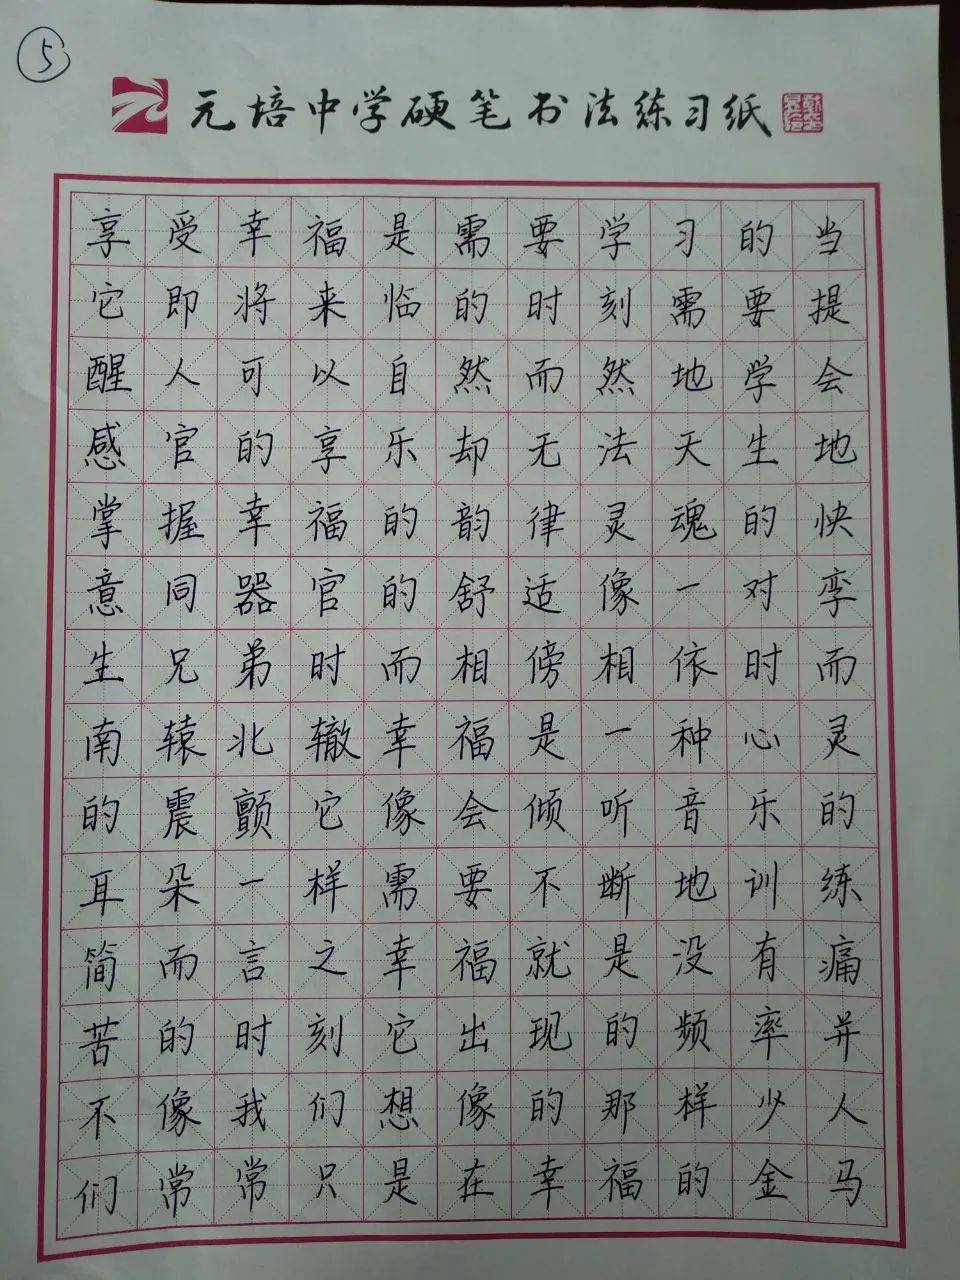 5
元培中学硬笔书法练习纸
享受幸福是需要学习的当
它即将来临的时刻需要提
醒人可以自然而然地学会
感官的享乐却无法天生地
掌握幸福的韵律灵魂的快
意同器官的舒适像一对孪
生兄弟时而相傍相依时而
南辕北辙幸福是一种心灵
的震颤它像会倾听音乐的
耳朵一样需要不断地训练
简而言之幸福就是没有痛
苦的时刻它出现的频率并
不像我们想像的那样少人
们常常只是在幸福的金马